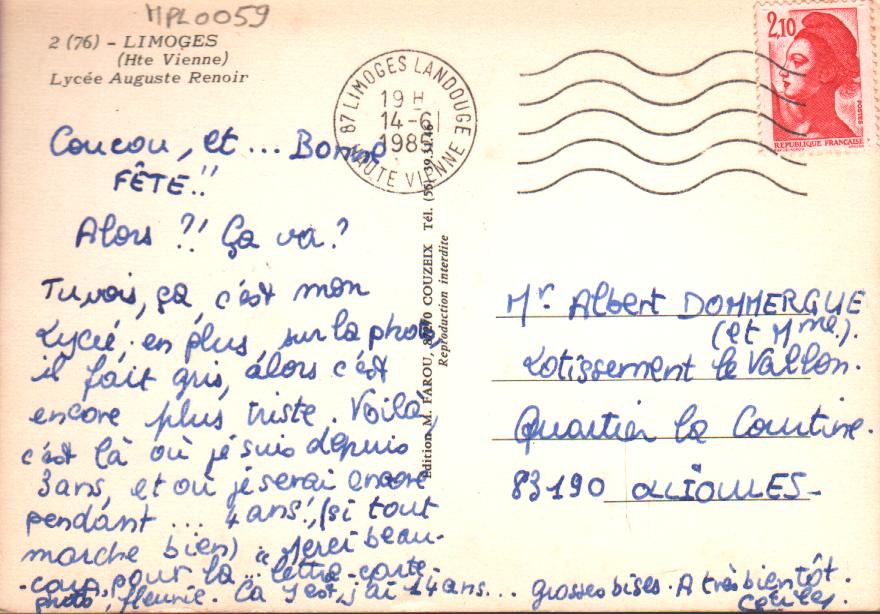 MPL0059
2 (76) - LIMOGES
(Hte Vienne)
Lycée Auguste Renoir
Coucou, et ... Bonne
FÊTE !!
Alors ?! Ça va ?
Tu vois, ça, c'est mon
Lycée, en plus sur la photo,
il fait gris, alors c'est
encore plus triste. Voilà,
c'est là où je suis depuis
3 ans, et où je serai encore
pendant ... 4 ans !, (si tout
marche bien) Merci beau-
-coup pour la "lettre-carte-
photo", fleurie. Ca y est, j'ai 14 ans ... grosses bises. A très bientôt.
Edition M. FAROU, COUZEIX Tél. (55) 39
Reproduction interdite
87 LIMOGES LANDOUGE
19 H
14-6
198
HAUTE VIENNE
2,10
POSTES
REPUBLIQUE FRANÇAISE
Mr Albert DOMMERGUE
(et Mme).
Lotissement le Vallon.
Quartier la Courtine.
83190 OLLIOULES-